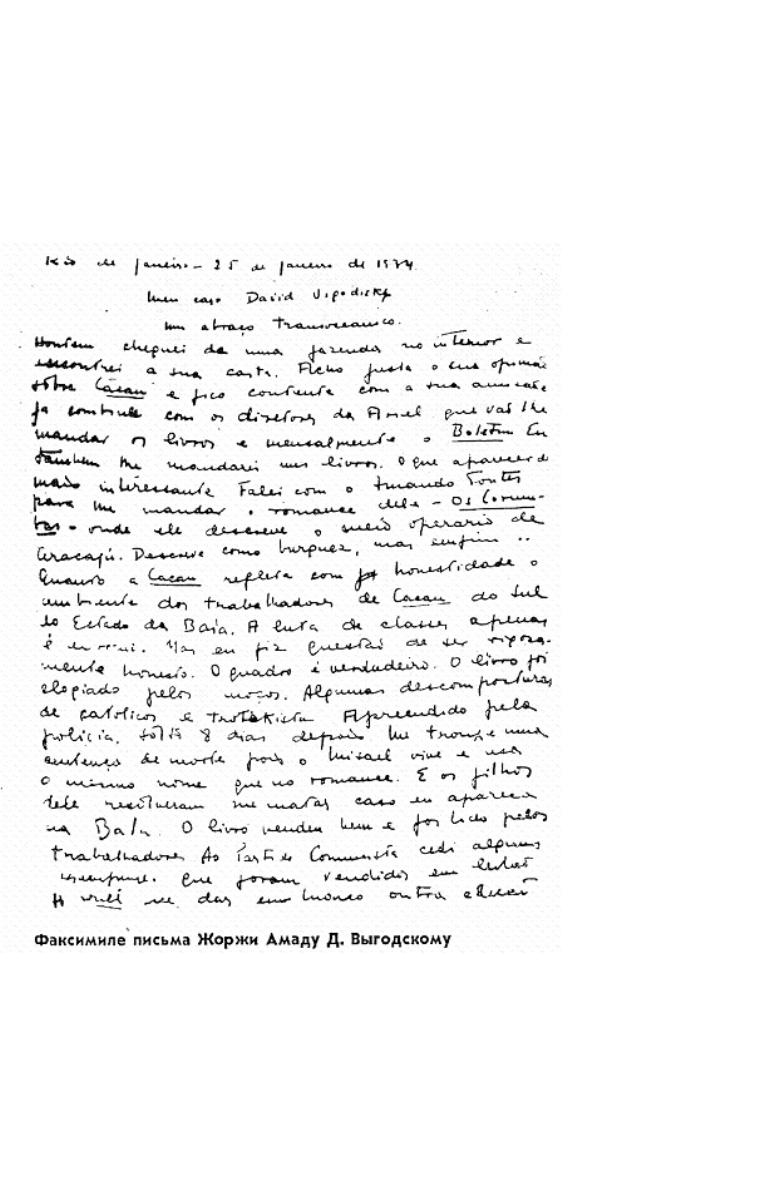 Rio de Janeiro - 25 de Janeiro de 1934.
Meu caro David Vigodisky
um abraço transoceanico.
Hontem cheguei de uma fazenda no interior e
encontrei a sua carta. Acho justa a sua opinião
sôbre Cacau e fico contente com a sua
Já combinei com os diretores da Ariel que vae lhe
mandar os livros e mensalmente o Boletim Eu
tambem lhe mandarei uns livros. O que aparecer de
mais interessante Falei com o Amando Fontes
para lhe mandar o romance dele - Os Corum-
bas - onde ele descreve o meio operario de
Aracajú. Descreve como burguez, mas emfim ..
Quanto a Cacau reflete com honestidade o
ambiente dos trabalhadores de Cacau do sul
do Estado da Baía. A luta de classes apenas
é Mas eu fiz questão de ser rigoro-
mente honesto. O quadro é verdadeiro. O livro foi
elogiado pelos moços. Algumas descomposturas
de catolicos e trotskista Apreendido pela
policia, 8 dias depois me trouxe uma
sentença de morte pois o Misael vive e usa
o mesmo nome que no romance. E os filhos
dele resolveram me matar caso eu apareça
na Baía. O livro vendeu bem e foi lido pelos
trabalhadores Ao Partido Comunista cedi alguns
que foram vendidos em
A vae dar em outra edição
Факсимиле письма Жоржи Амаду Д. Выгодскому